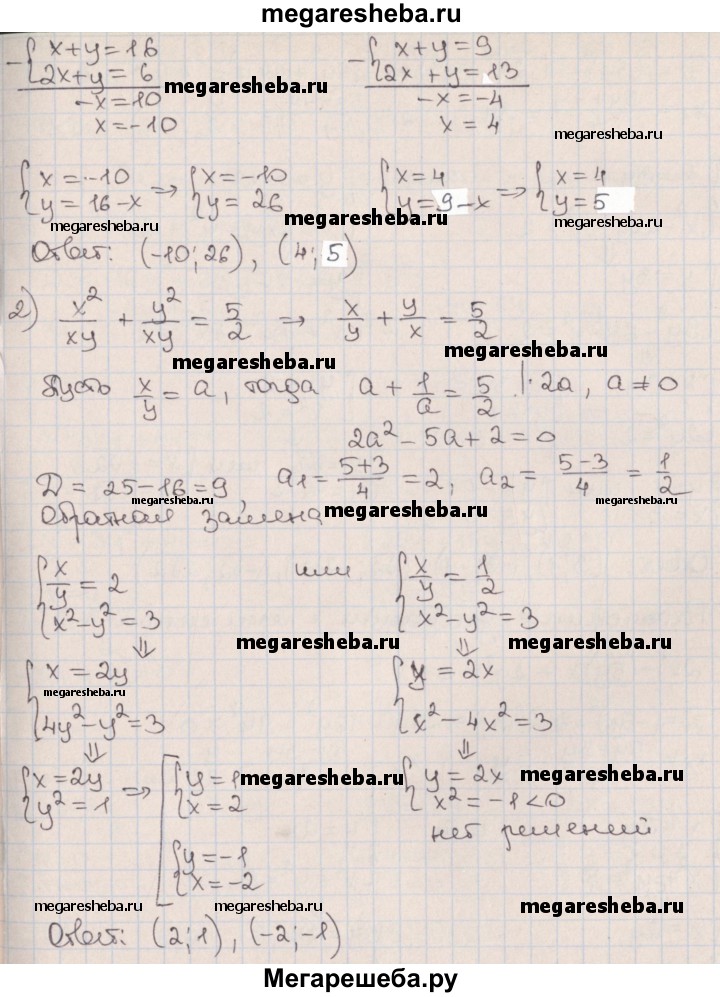 megaresheba.ru
{x+y=16
{2x+y=6
-x=10
x=-10
{x+y=9
{2x+y=13
-x=-4
x=4
megaresheba.ru
megaresheba.ru
{x=-10
{y=16-x
⇒ {x=-10
{y=26
{x=4
{y=9-x
⇒ {x=4
{y=5
megaresheba.ru
megaresheba.ru
megaresheba.ru
Ответ: (-10; 26), (4; 5)
2) x²/xy + y²/xy = 5/2 ⇒ x/y + y/x = 5/2
megaresheba.ru
megaresheba.ru
Пусть x/y = a, тогда a + 1/a = 5/2 |·2a, a≠0
2a²-5a+2=0
D = 25-16=9, a1 = (5+3)/4 = 2, a2 = (5-3)/4 = 1/2
megaresheba.ru
megaresheba.ru
Обратная замена
megaresheba.ru
{x/y = 2
{x²-y²=3
или
{x/y = 1/2
{x²-y²=3
megaresheba.ru
megaresheba.ru
⇓
{x=2y
megaresheba.ru
{4y²-y²=3
⇓
{y=2x
{x²-4x²=3
⇓
{x=2y
{y²=1
⇒ [{y=1
{x=2
{y=-1
{x=-2
megaresheba.ru
⇓
{y=2x
{x²=-1<0
нет решений
megaresheba.ru
megaresheba.ru
megaresheba.ru
megaresheba.ru
Ответ: (2; 1), (-2; -1)
Мегарешеба.ру